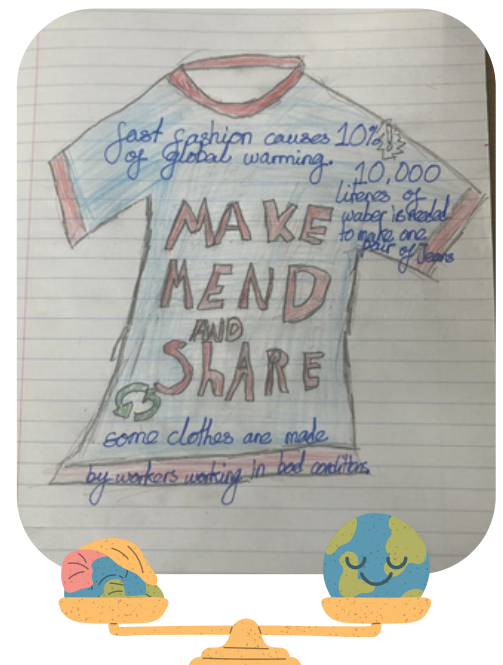 fast fashion causes 10%
of global warming.
10,000
literes of
water is needed
to make one
pair of Jeans
MAKE
MEND
AND
ShARE
some clothes are made
by workers working in bad conditions.